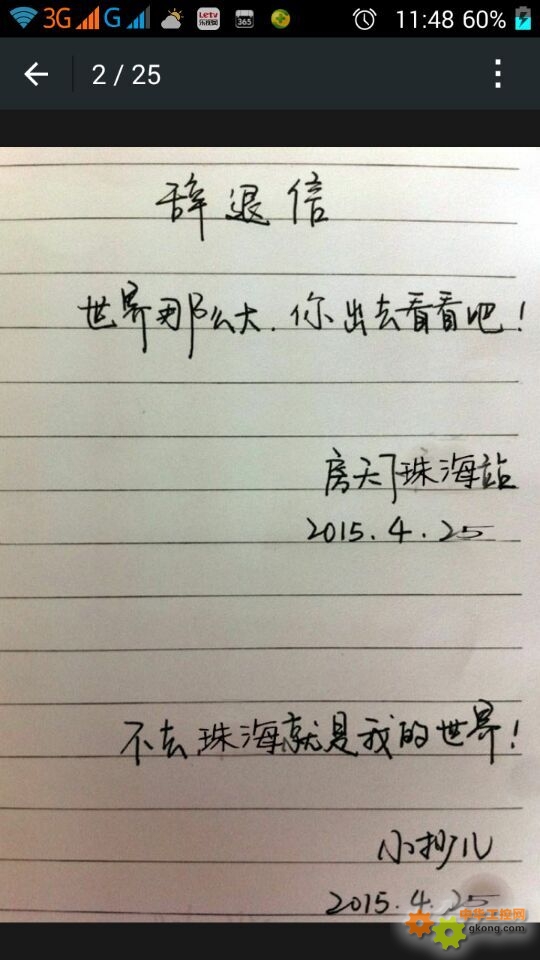 3G G 11:48 60%
Letv
乐视网
365
2 / 25
辞退信
世界那么大.你出去看看吧!
房天下珠海站
2015.4.25
不去珠海就是我的世界!
2015.4.25
中华工控网
gkong.com